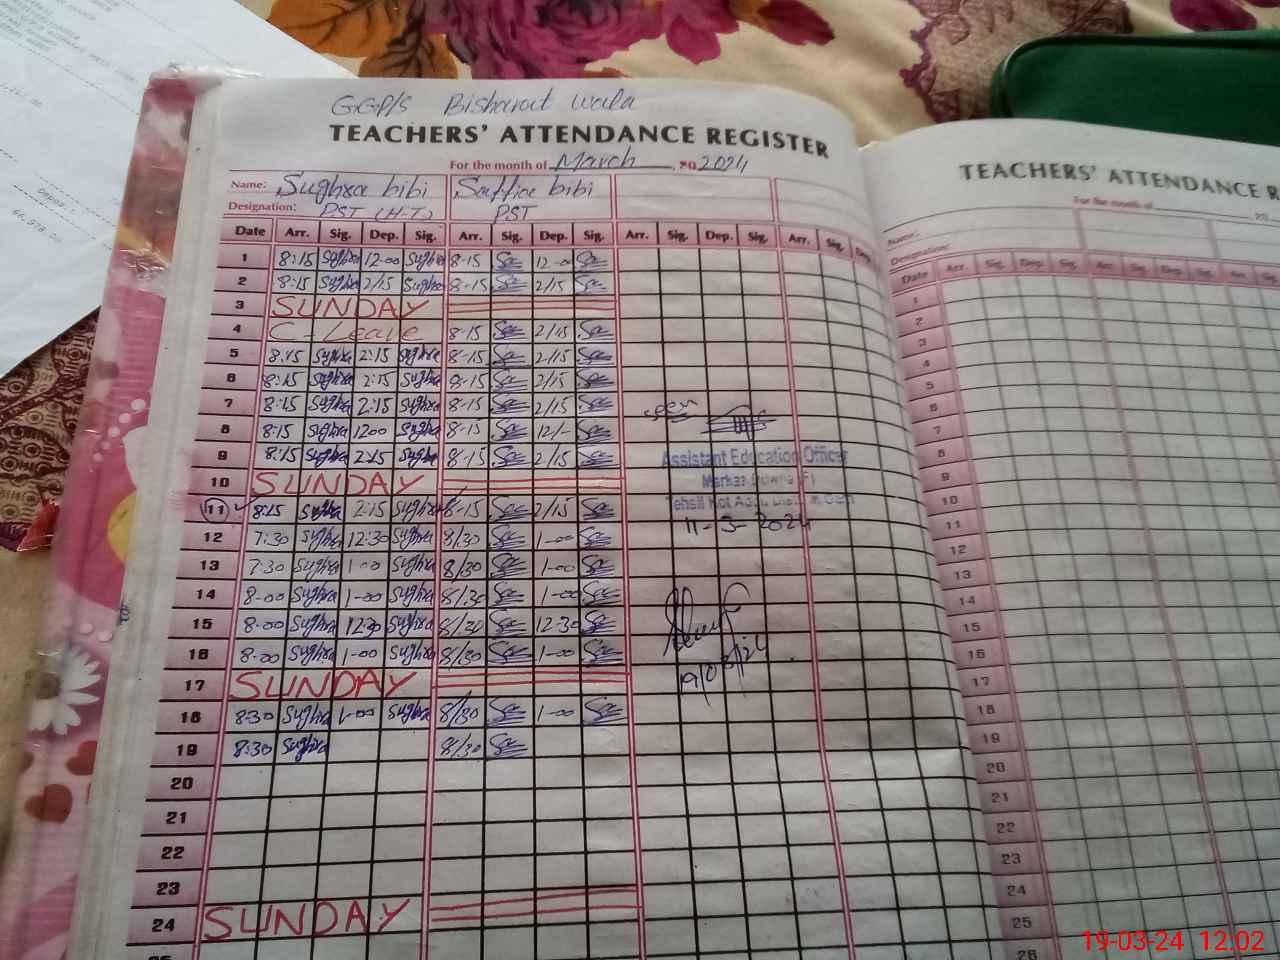 GGP/S Bisharat wala
TEACHERS' ATTENDANCE REGISTER
For the month of March, 2024
Name: Sughra bibi Saffia bibi
Designation: PST (H-T) PST
Date Arr. Sig. Dep. Sig. Arr. Sig. Dep. Sig. Arr. Sig. Dep. Sig. Arr. Sig. Dep.
1 8:15 Sughra 12-00 Sughra 8-15 12-00
2 8:15 Sughra 2/15 Sughra 8-15 2/15
3 SUNDAY
4 C-Leave 8-15 2/15
5 8:15 Sughra 2:15 Sughra 8-15 2/15
6 8:15 Sughra 2:15 Sughra 8-15 2/15
7 8:15 Sughra 2:15 Sughra 8-15 2/15
8 8:15 Sughra 1200 Sughra 8-15 12/-
9 8:15 Sughra 2:15 Sughra 8-15 2/15
10 SUNDAY
11 8:15 Sughra 2:15 Sughra 8-15 2/15
12 7:30 Sughra 12:30 Sughra 8/30 1-00
13 7:30 Sughra 1-00 Sughra 8/30 1-00
14 8-00 Sughra 1-00 Sughra 8/30 1-00
15 8-00 Sughra 12:30 Sughra 8/30 12-30
16 8-00 Sughra 1-00 Sughra 8/30 1-00
17 SUNDAY
18 8:30 Sughra 1-00 Sughra 8/30 1-00
19 8:30 Sughra 8/30
20
21
22
23
24 SUNDAY
seen
Assistant Education Officer
Tehsil Kot Addu
11-3-2024
19/03/24
TEACHERS' ATTENDANCE R
For the month of
Name:
Designation:
Date Arr. Sig. Dep. Sig. Arr. Sig. Dep. Sig. Arr. Sig.
1
2
3
4
5
6
7
8
9
10
11
12
13
14
15
16
17
18
19
20
21
22
23
24
25
26
19-03-24 12:02